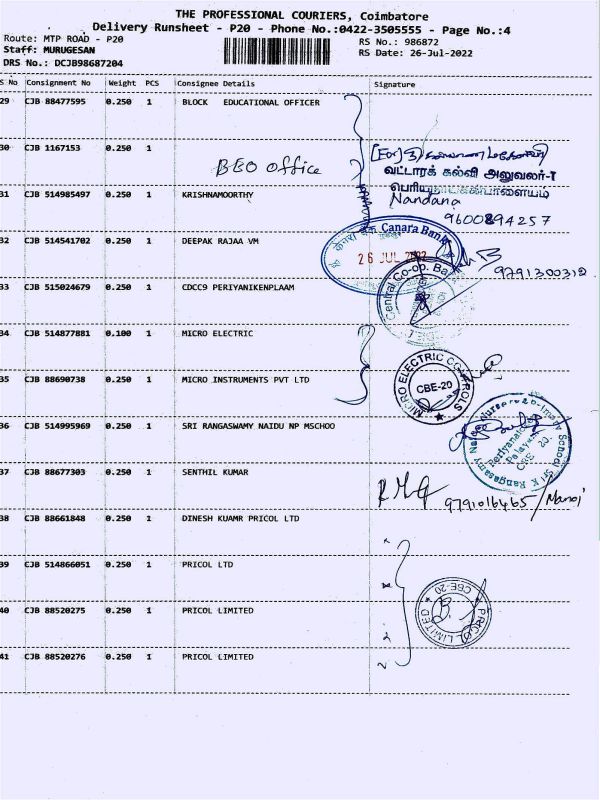 THE PROFESSIONAL COURIERS, Coimbatore
Delivery Runsheet - P20 - Phone No.:0422-3505555 - Page No.:4
Route: MTP ROAD - P20
RS No.: 986872
Staff: MURUGESAN
RS Date: 26-Jul-2022
DRS No.: DCJB98687204
S No Consignment No Weight PCS Consignee Details Signature
29 CJB 88477595 0.250 1 BLOCK EDUCATIONAL OFFICER
30 CJB 1167153 0.250 1
BEO office
வட்டாரக் கல்வி அலுவலர்-1
31 CJB 514985497 0.250 1 KRISHNAMOORTHY
Nandana
9600894257
32 CJB 514541702 0.250 1 DEEPAK RAJAA VM
केनरा बैंक Canara Bank
26 JUL 2022
9791300312
33 CJB 515024679 0.250 1 CDCC9 PERIYANIKENPLAAM
Central Co-op. Ba
34 CJB 514877881 0.100 1 MICRO ELECTRIC
35 CJB 88690738 0.250 1 MICRO INSTRUMENTS PVT LTD
MICRO ELECTRIC CONTROLS
CBE-20
36 CJB 514995969 0.250 1 SRI RANGASWAMY NAIDU NP MSCHOO
Sri K Rangasamy Naidu Nursery & Primary School
Periyanaicken Palayam
CBE 20.
37 CJB 88677303 0.250 1 SENTHIL KUMAR
9791016465/Manoj
38 CJB 88661848 0.250 1 DINESH KUAMR PRICOL LTD
39 CJB 514866051 0.250 1 PRICOL LTD
40 CJB 88520275 0.250 1 PRICOL LIMITED
PRICOL LIMITED
CBE-20
41 CJB 88520276 0.250 1 PRICOL LIMITED